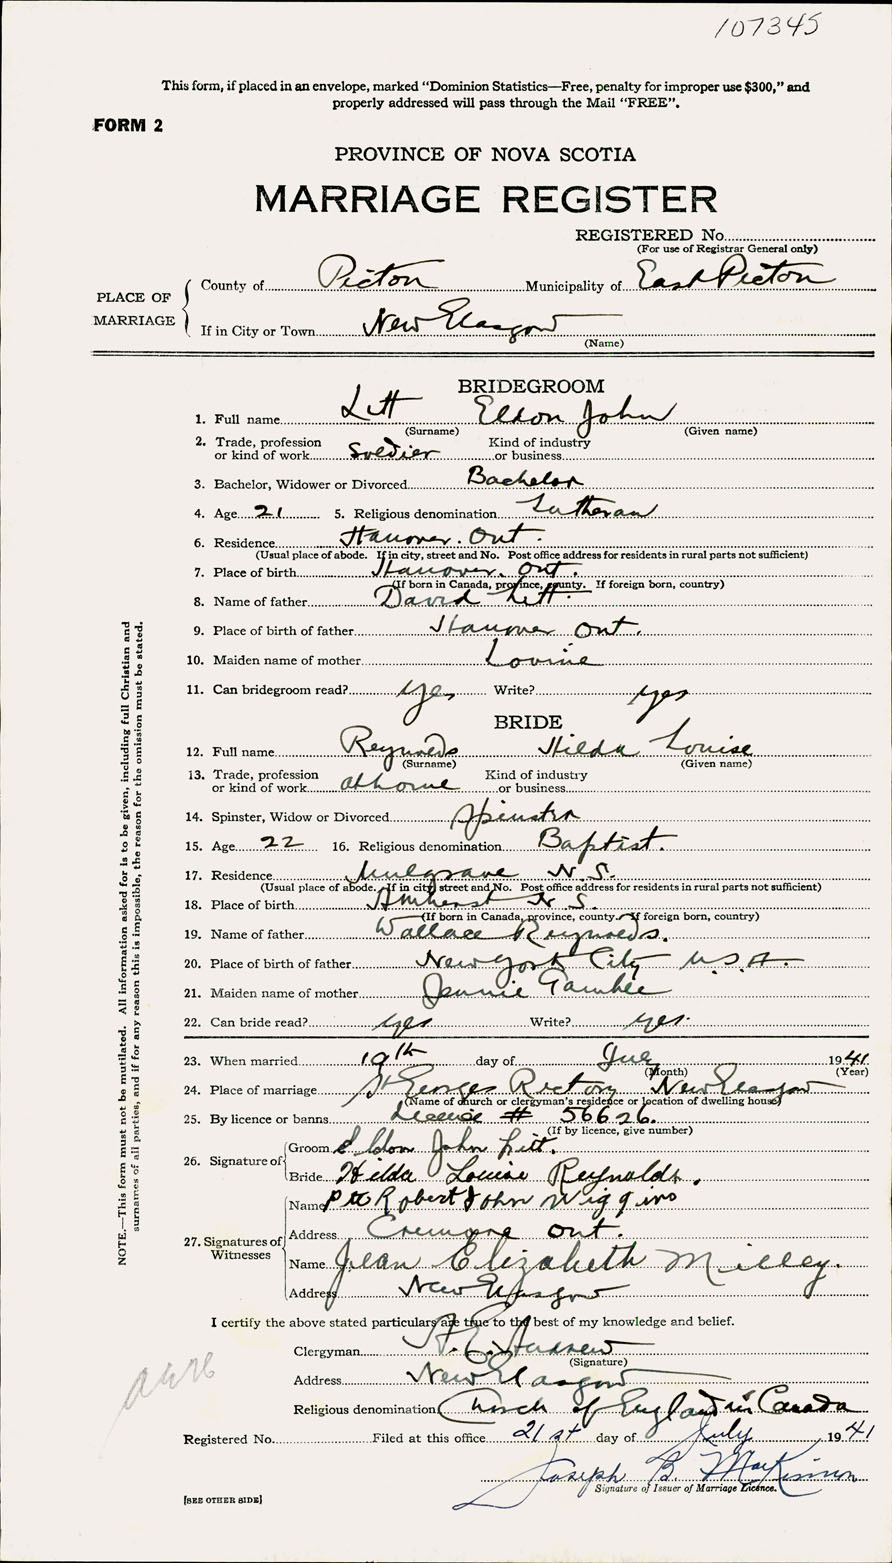 107345
This form, if placed in an envelope, marked "Dominion Statistics—Free, penalty for improper use $300," and
properly addressed will pass through the Mail "FREE".
FORM 2
PROVINCE OF NOVA SCOTIA
MARRIAGE REGISTER
REGISTERED No.
(For use of Registrar General only)
PLACE OF MARRIAGE
County of Pictou Municipality of East Pictou
If in City or Town New Glasgow
(Name)
BRIDEGROOM
1. Full name Litt Eldon John
(Surname) (Given name)
2. Trade, profession or kind of work Soldier Kind of industry or business
3. Bachelor, Widower or Divorced Bachelor
4. Age 21 5. Religious denomination Lutheran
6. Residence Hanover. Ont.
(Usual place of abode. If in city, street and No. Post office address for residents in rural parts not sufficient)
7. Place of birth Hanover. Ont.
(If born in Canada, province, county. If foreign born, country)
8. Name of father David Litt.
9. Place of birth of father Hanover Ont.
10. Maiden name of mother Lovine
11. Can bridegroom read? yes Write? yes
BRIDE
12. Full name Reynolds Hilda Louise
(Surname) (Given name)
13. Trade, profession or kind of work at home Kind of industry or business
14. Spinster, Widow or Divorced Spinster
15. Age 22 16. Religious denomination Baptist.
17. Residence Mulgrave N.S.
(Usual place of abode. If in city street and No. Post office address for residents in rural parts not sufficient)
18. Place of birth Amherst N.S.
(If born in Canada, province, county. If foreign born, country)
19. Name of father Wallace Reynolds.
20. Place of birth of father New York City U.S.A.
21. Maiden name of mother Jennie
22. Can bride read? yes Write? yes.
23. When married 19th day of July 1941
(Month) (Year)
24. Place of marriage St Georges Rectory New Glasgow
(Name of church or clergyman's residence or location of dwelling house)
25. By licence or banns Licence # 56626.
(If by licence, give number)
26. Signature of
Groom Eldon John Litt.
Bride Hilda Louise Reynolds.
27. Signatures of Witnesses
Name Pte Robert John Wiggins
Address Creemore Ont.
Name Jean Elizabeth Milley.
Address New Glasgow
I certify the above stated particulars are true to the best of my knowledge and belief.
Clergyman A.E. Andrew
(Signature)
Address New Glasgow
Religious denomination Church of England in Canada
Registered No. Filed at this office 21st day of July 1941
Joseph B. MacKinnon
Signature of Issuer of Marriage Licence.
[SEE OTHER SIDE]
NOTE.—This form must not be mutilated. All information asked for is to be given, including full Christian and
surnames of all parties, and if for any reason this is impossible, the reason for the omission must be stated.